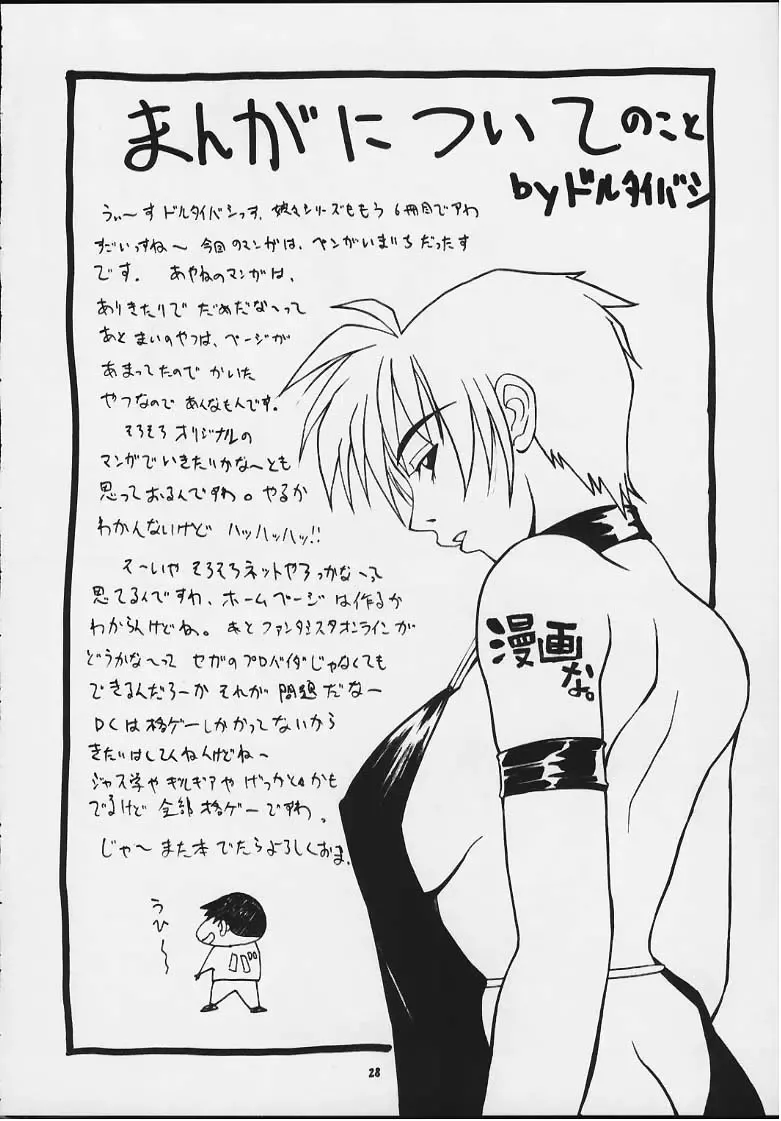 まんがについてのこと
byドルタイバシ
うぃ〜すドルタイバシっす。娘々シリーズももう6冊目でアわ
すごいっすね〜 今回のマンガは、ペンがいまいちだったす
です。 あやねのマンガは、
ありきたりで だめだな〜って
あと まいのやつは、ページが
あまってたので かいた
やつなので あんなもんです。
そろそろ オリジナルの
マンガでいきたいかな〜とも
思っておるんですわ。やるか
わかんないけど ハッハッハッ!!
そ〜いや そろそろネットやろっかな〜って
思てるんですわ、ホームページは作るか
わからんけどね。あと ファンタシスタオンラインが
どうかな〜って セガのプロバイダじゃなくても
できるんだろーか それが 問題だなー
DCは格ゲーしかかってないから
きたいはしてんねんけどね〜
ジャス学や ギルギアや げっかと4かも
でるけど 全部 格ゲーですわ。
じゃ〜 また本 でたら よろしくおま。
漫画
な。
うひ〜〜
28